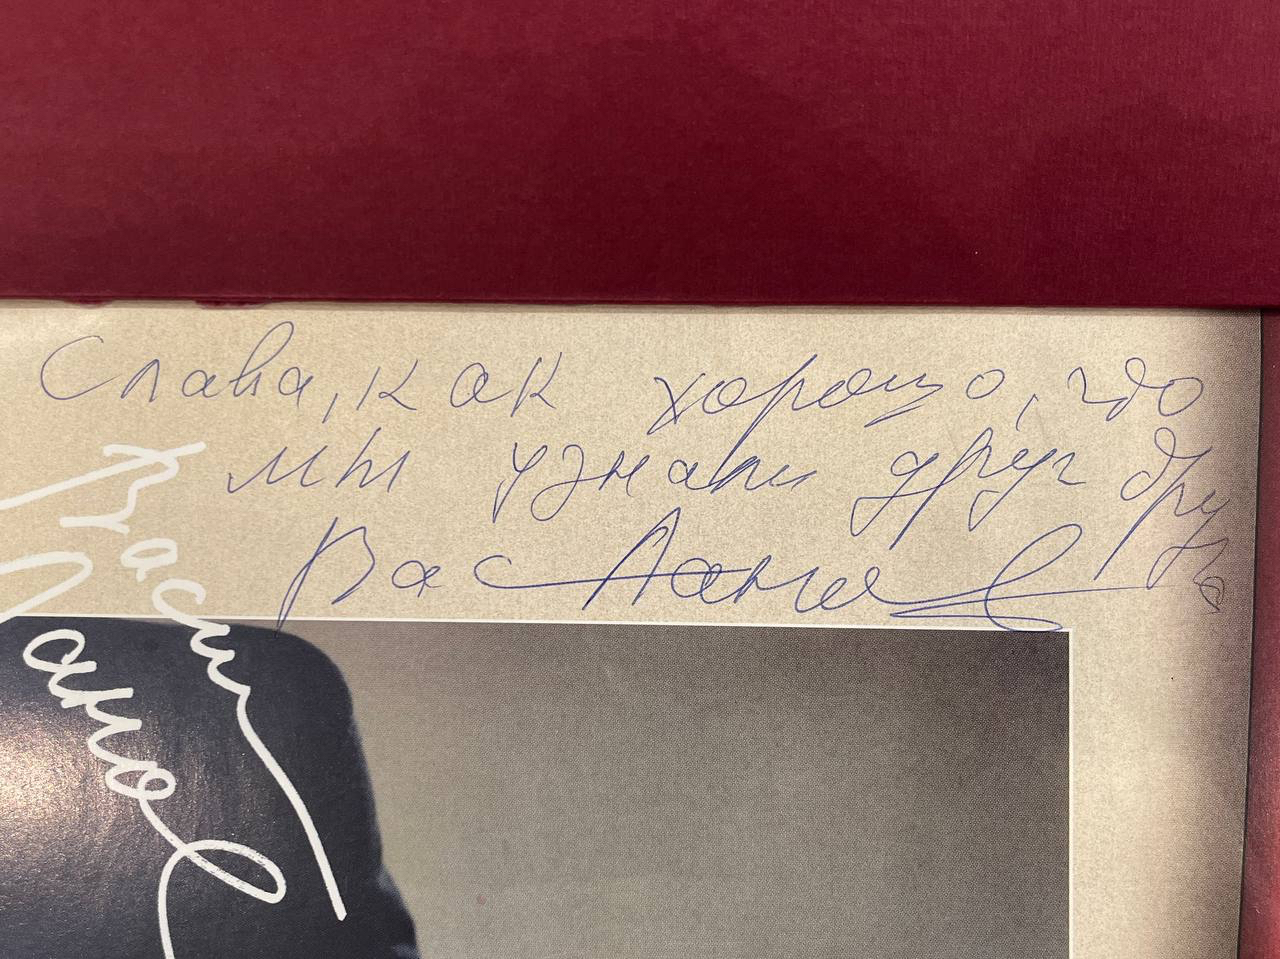 Слава, как хорошо, что
мы узнали друг друга
Вас Лано
Васил
Лано